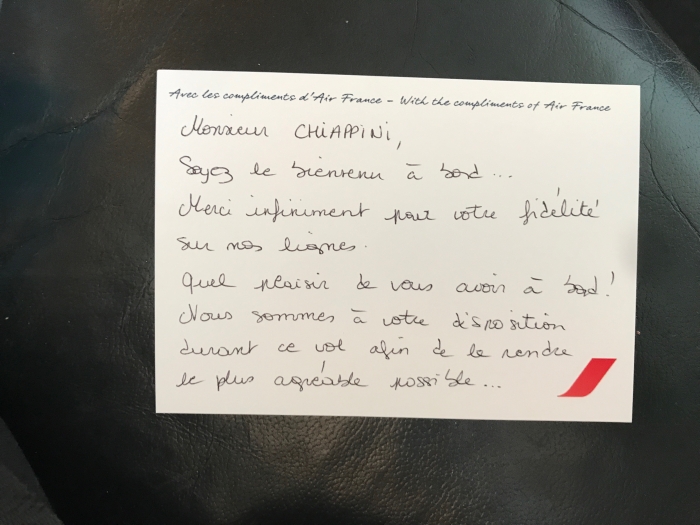 Avec les compliments d'Air France - With the compliments of Air France
Monsieur CHIAPPINI,
Soyez le bienvenu à bord ...
Merci infiniment pour votre fidélité
sur nos lignes.
Quel plaisir de vous avoir à bord!
Nous sommes à votre disposition
durant ce vol afin de le rendre
le plus agréable possible...